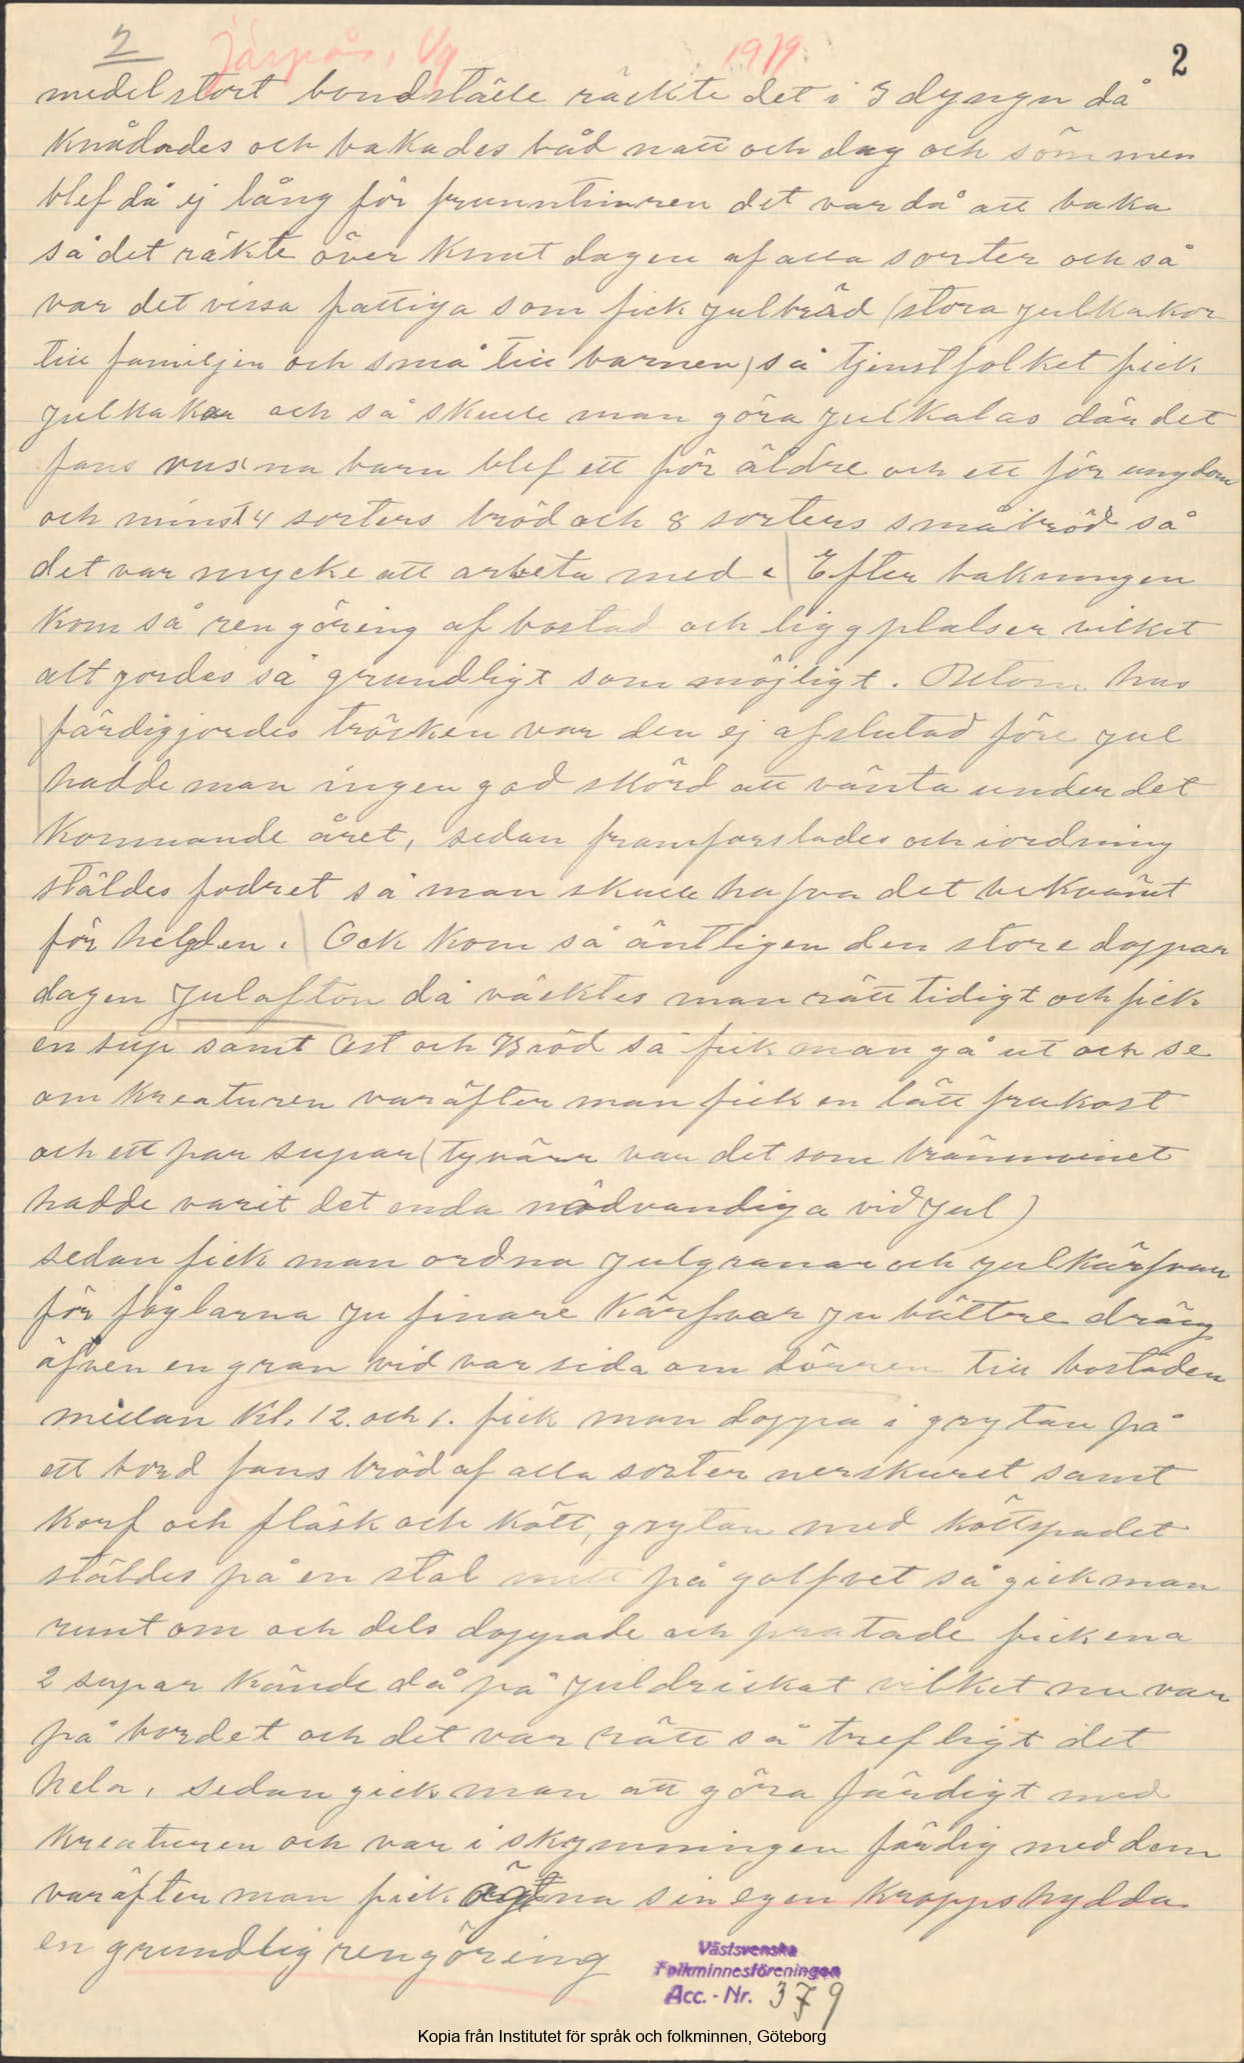 2 Järpås, Vg 1919. 2
medelstort bondställe räckte det i 3 dyngn då
knådades och bakades båd natt och dag och sömmen
blef då ej lång för fruntimren det var då att baka
så det räkte över Knut dagen af alla sorter och så
var det vissa fattiga som fick julbröd (stora julkakor
till familjen och små till barnen) så tjenstfolket fick
julkakor och så skulle man göra julkalas där det
fans vuxna barn blef ett för äldre och ett för ungdom
och minst 4 sorters bröd och 8 sorters småbröd så
det var mycke att arbeta med. Efter bakningen
kom så rengöring af bostad och liggplatser vilket
alt gordes så grundligt som möjligt. Utom hus
färdiggjordes trösken var den ej afslutad före jul
hadde man ingen god skörd att vänta under det
Kommande året, sedan framforslades och iordning
stäldes fodret så man skulle hafva det bekvämt
för helgden. Ock kom så äntligen den store doppar
dagen Julafton då väcktes man rätt tidigt och fick
en sup samt Ost och Bröd så fick man gå ut och se
om Kreaturen varäfter man fick en lätt frukost
och ett par supar (tyvärr var det som brännvinet
hadde varit det enda nödvandiga vid Jul)
sedan fick man ordna julgranar och julkärfvar
för foglarna ju finare Kärfvar ju bättre dräng
äfven en gran vid var sida om dörren till bostaden
mellan Kl. 12. och 1. fick man doppa i grytan på
ett bord fans bröd af alla sorter nerskuret samt
Korf och fläsk och kött, grytan med köttspadet
stäldes på en stol mitt på golfvet så gick man
runt om och dels doppade och pratade fick ena
2 supar kände då på juldrickat vilket nu var
på bordet och det var rätt så trefligt det
hela, sedan gick man att göra färdigt med
Kreaturen och var i skymningen färdig med dem
varäfter man fick ägna sin egen kroppshydda
en grundlig rengöring
Västsvenska
Folkminnesföreningen
Acc. - Nr. 379
Kopia från Institutet för språk och folkminnen, Göteborg